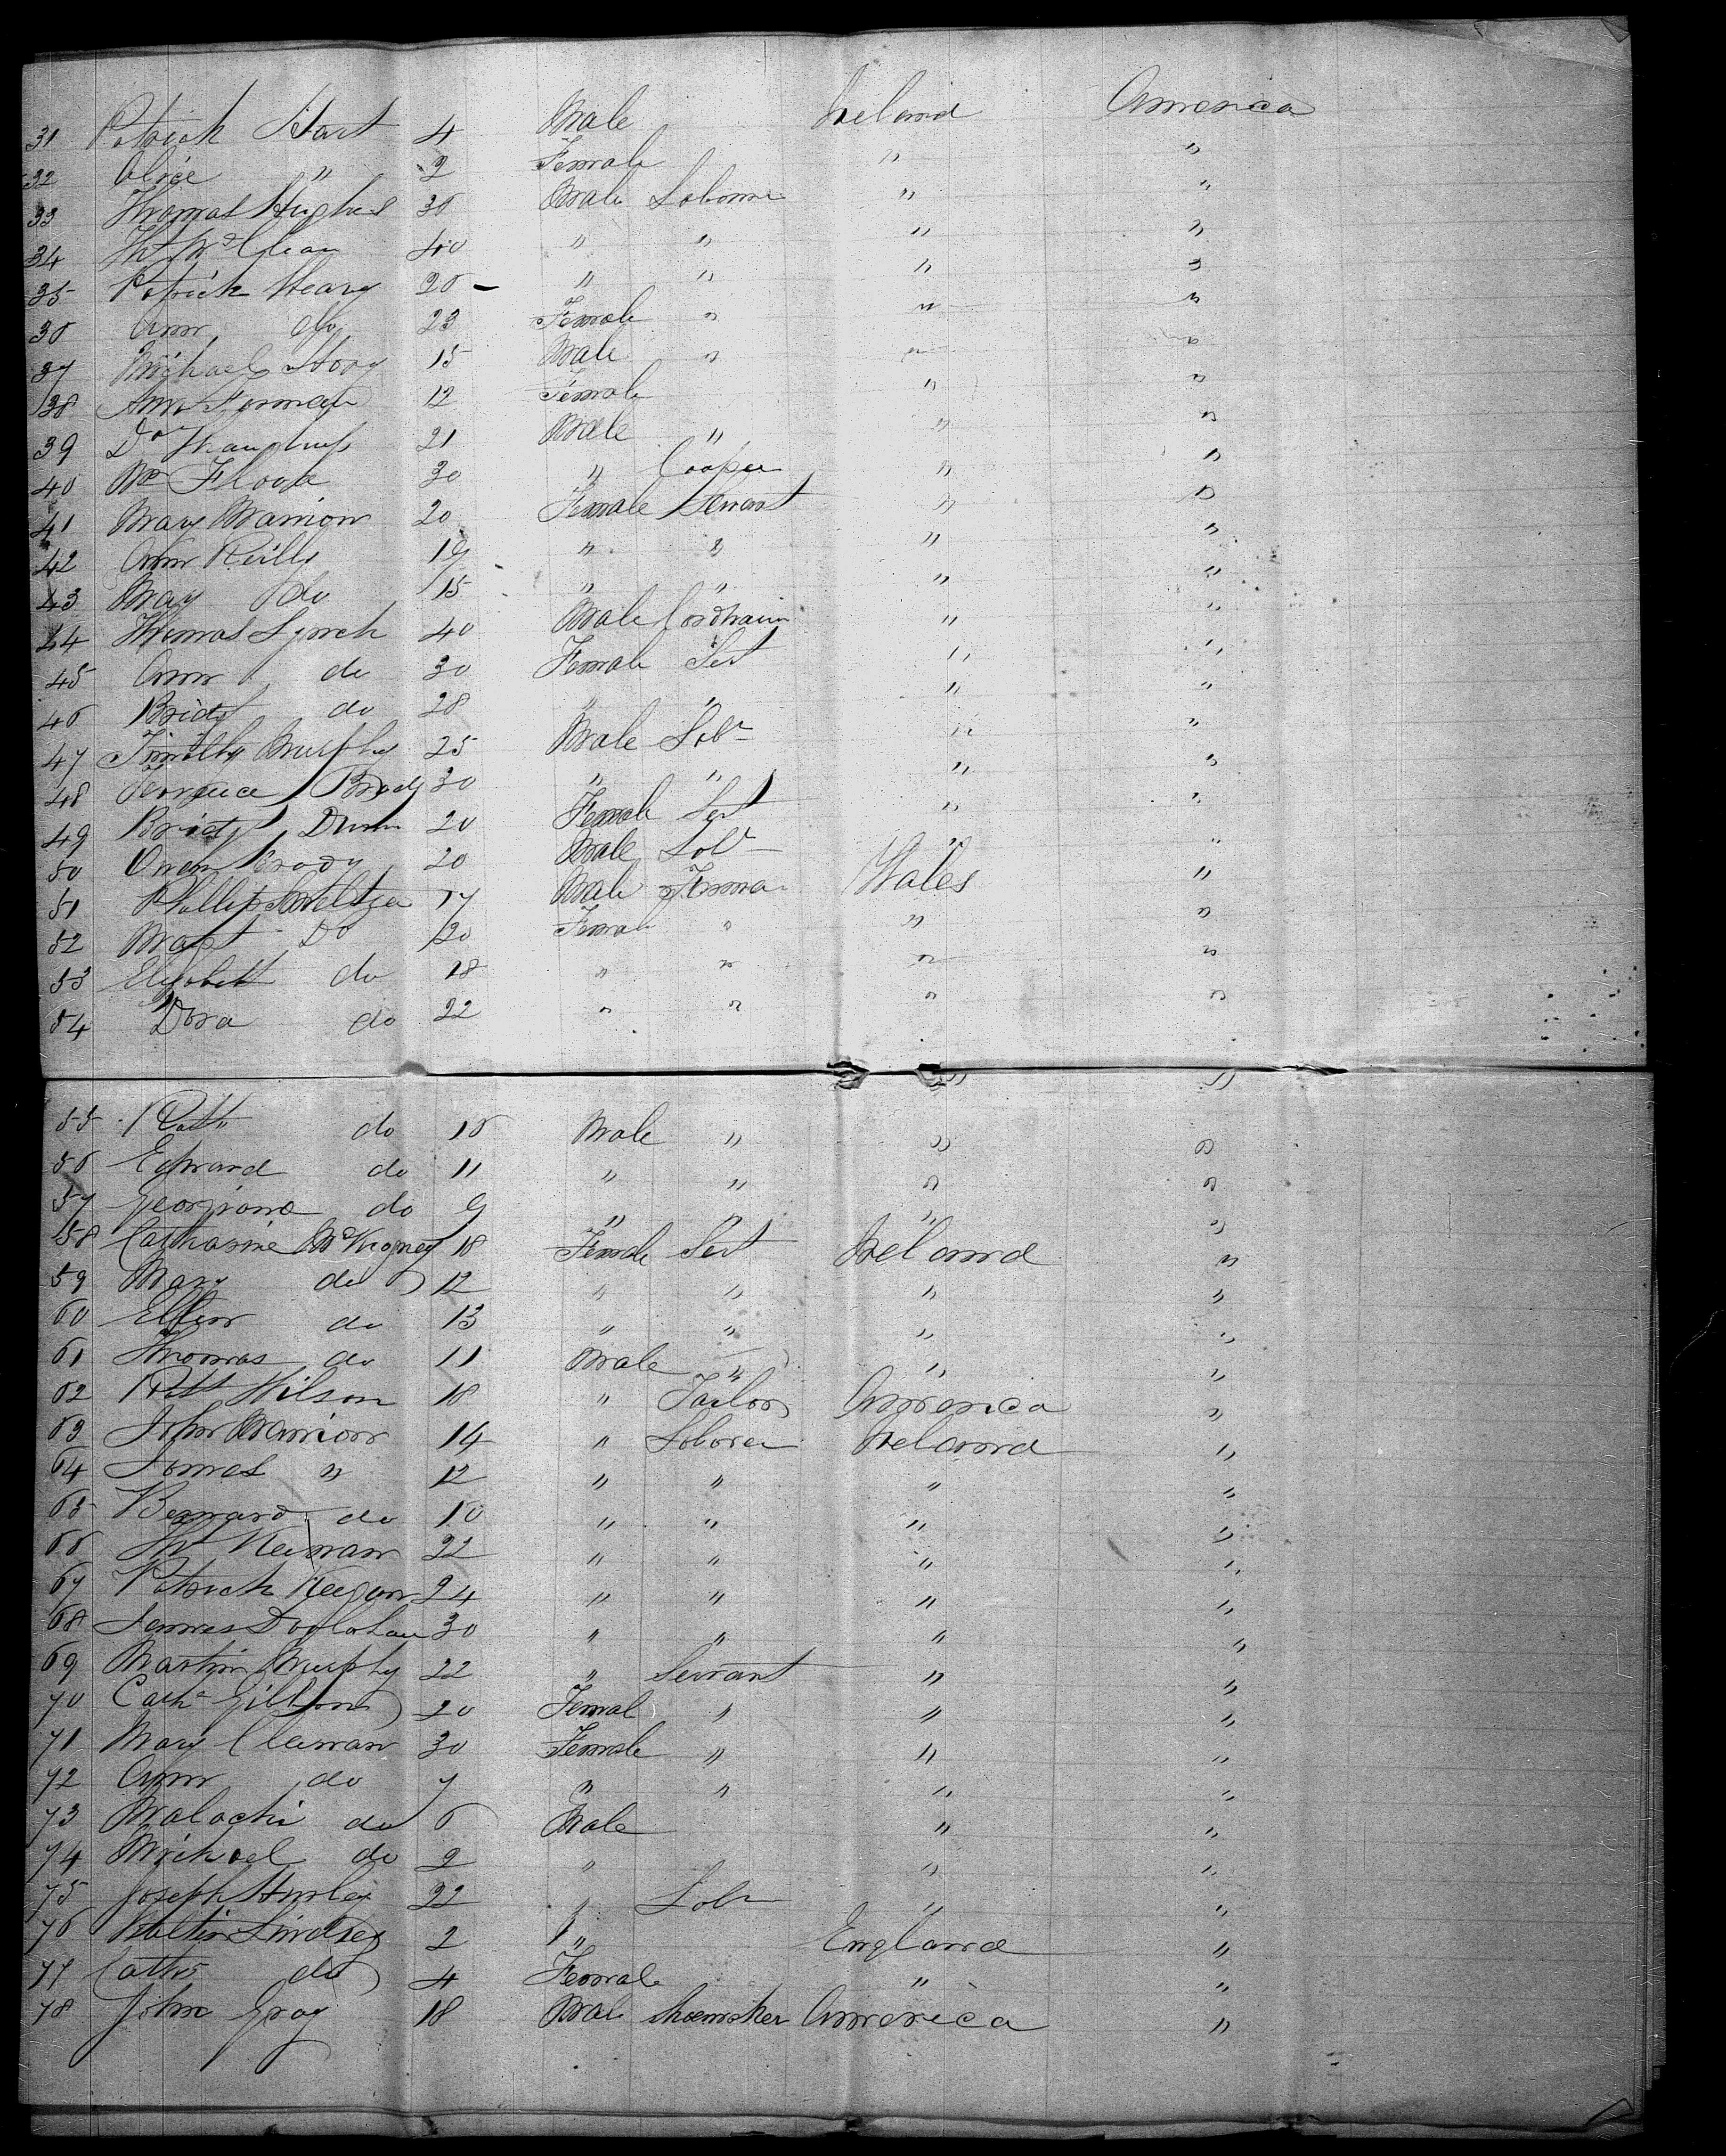 31 Patrick Hart 4 Male Ireland America
32 Alice " 2 Female " "
33 Thomas Hughes 36 Male Laborer " "
34 40 " " " "
35 Patrick Heary 26 - " " " "
36 Ann do 23 Female " " "
37 Michael Story 15 Male " " "
38 Ann Forman 12 Female " "
39 Do 21 Male " " "
40 Wm 30 " Cooper " "
41 Mary Marrion 20 Female Servant " "
42 Ann Reilly 19 " " " "
43 Mary do 15 " " " "
44 Thomas Lynch 40 Male " "
45 Ann do 30 Female Sert " "
46 Bridgt do 28 " " " "
47 Timothy Murphy 25 Male Labr " "
48 Terrence Brady 30 " " " "
49 Bridgt Dunn 20 Female Sert " "
50 Owen Brady 20 Male Labr " "
51 Phillip 17 Male Farmer Wales "
52 Margt Do 20 Femal " " "
53 Elizabeth do 18 " " " "
54 Dora do 22 " " " "
55 do 16 Male " " "
56 Edward do 11 " " " "
57 Georgiana do 9 " " " "
58 Catharine 18 Female Sert Ireland "
59 Mary do 12 " " " "
60 Ellen do 13 " " " "
61 Thomas do 11 Male " " "
62 Robt Wilson 18 " Tailor America "
63 John Marrion 14 " Laborer Ireland "
64 James " 12 " " " "
65 Bernard do 10 " " " "
66 Keirnan 22 " " " "
67 Patrick Keegan 24 " " " "
68 James 30 " " " "
69 Martin Murphy 22 " Servant " "
70 Cath Gibbons 20 Femal " " "
71 Mary 30 Female " " "
72 Ann do 7 " " " "
73 Malachi do 6 Male " "
74 Michael do 2 " " "
75 Joseph Hurley 22 " Labr " "
76 Walter Lindsey 2 " England "
77 Cath do 4 Female " "
78 John Gray 18 Male Shoemaker America "